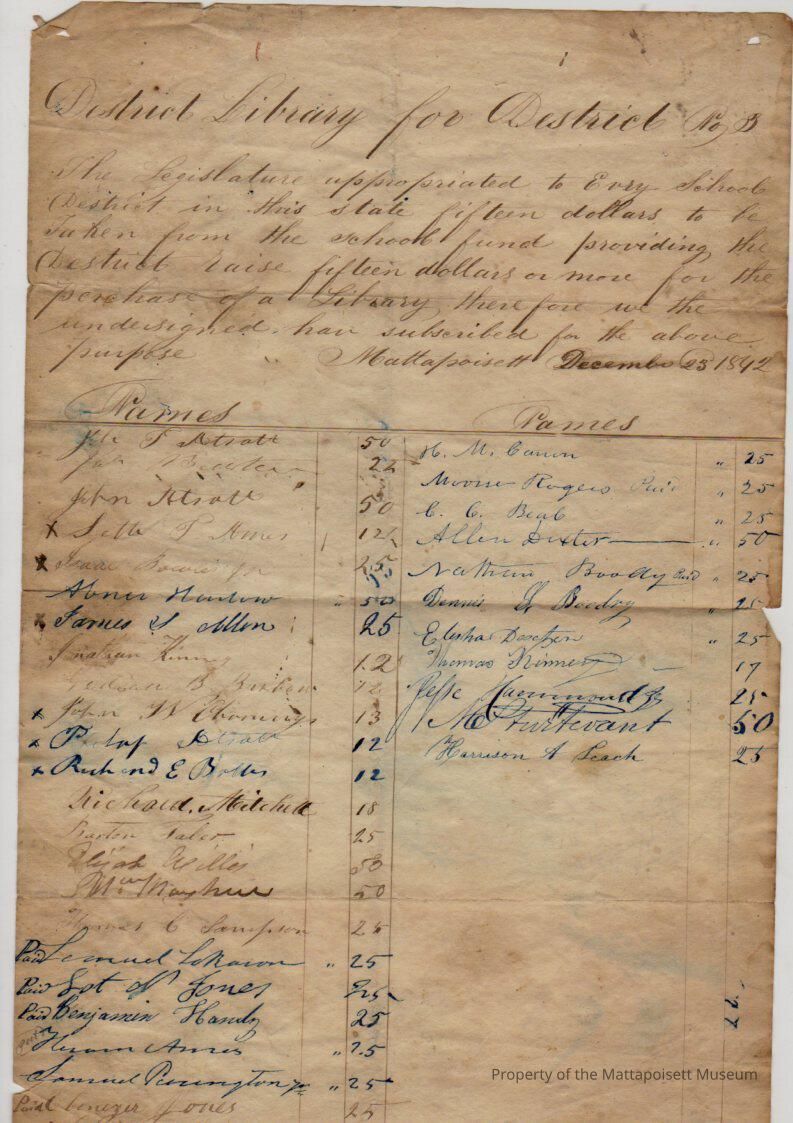 District Library for District No 3
The Legislature appropriated to Evry School
District in this state fifteen dollars to be
Taken from the school fund providing the
District raise fifteen dollars or more for the
perchase of a Library therefore we the
undersigned have subscribed for the above
purpose Mattapoisett December 23 1842
Names
50
22
John 50
x Seth T Ames 12
x Isaac 25
Abner Harlow " 50
x James S Allen 25
Jonathan Kinney 12
B. 12
x John W 13
x 12
x Richard E Bolles 12
Richard Mitchell 18
Barton Taber 25
Elijah Willis 50
Wm Mayhew 50
Thomas C Sampson 25
Paid Lemuel " 25
Paid Jones 25
Paid Benjamin Handy 25
Hiram Ames " 25
Samuel Purrington Jr " 25
Paid Ebenezer Jones 25
Names
H. M. Canon " 25
Rogers Paid " 25
C. C. " 25
Allen Dexter " 50
Nathan Boody Paid " 25
Dennis Boody " 25
Elisha " 25
Thomas Kinney 17
Jesse Hammond Jr 25
Sturtevant 50
Harrison A Leach 25
Property of the Mattapoisett Museum